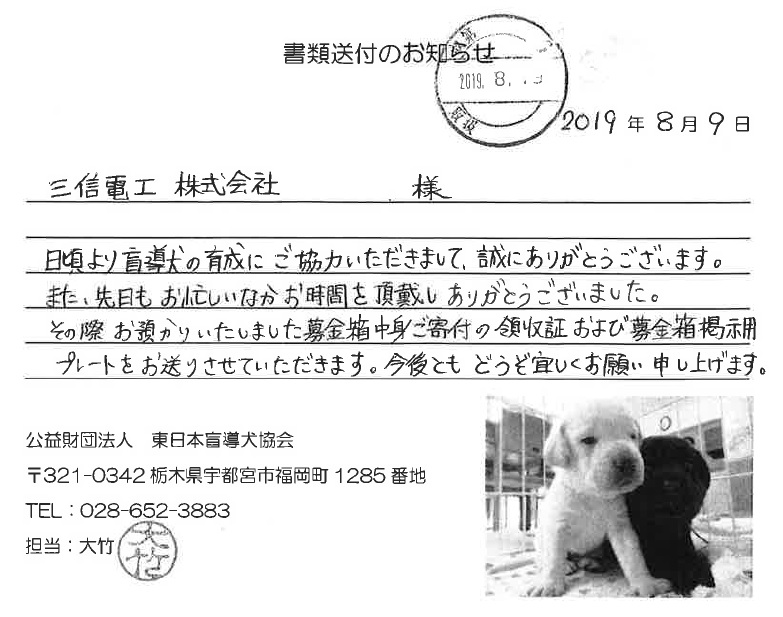 書類送付のお知らせ
2019. 8.
取扱
2019年8月9日
三信電工 株式会社 様
日頃より盲導犬の育成にご協力いただきまして、誠にありがとうございます。
また、先日もお忙しいなかお時間を頂戴しありがとうございました。
その際お預かりいたしました募金箱中身ご寄付の領収証および募金箱掲示用
プレートをお送りさせていただきます。今後ともどうぞ宜しくお願い申し上げます。
公益財団法人 東日本盲導犬協会
〒321-0342 栃木県宇都宮市福岡町1285番地
TEL:028-652-3883
担当:大竹
大竹